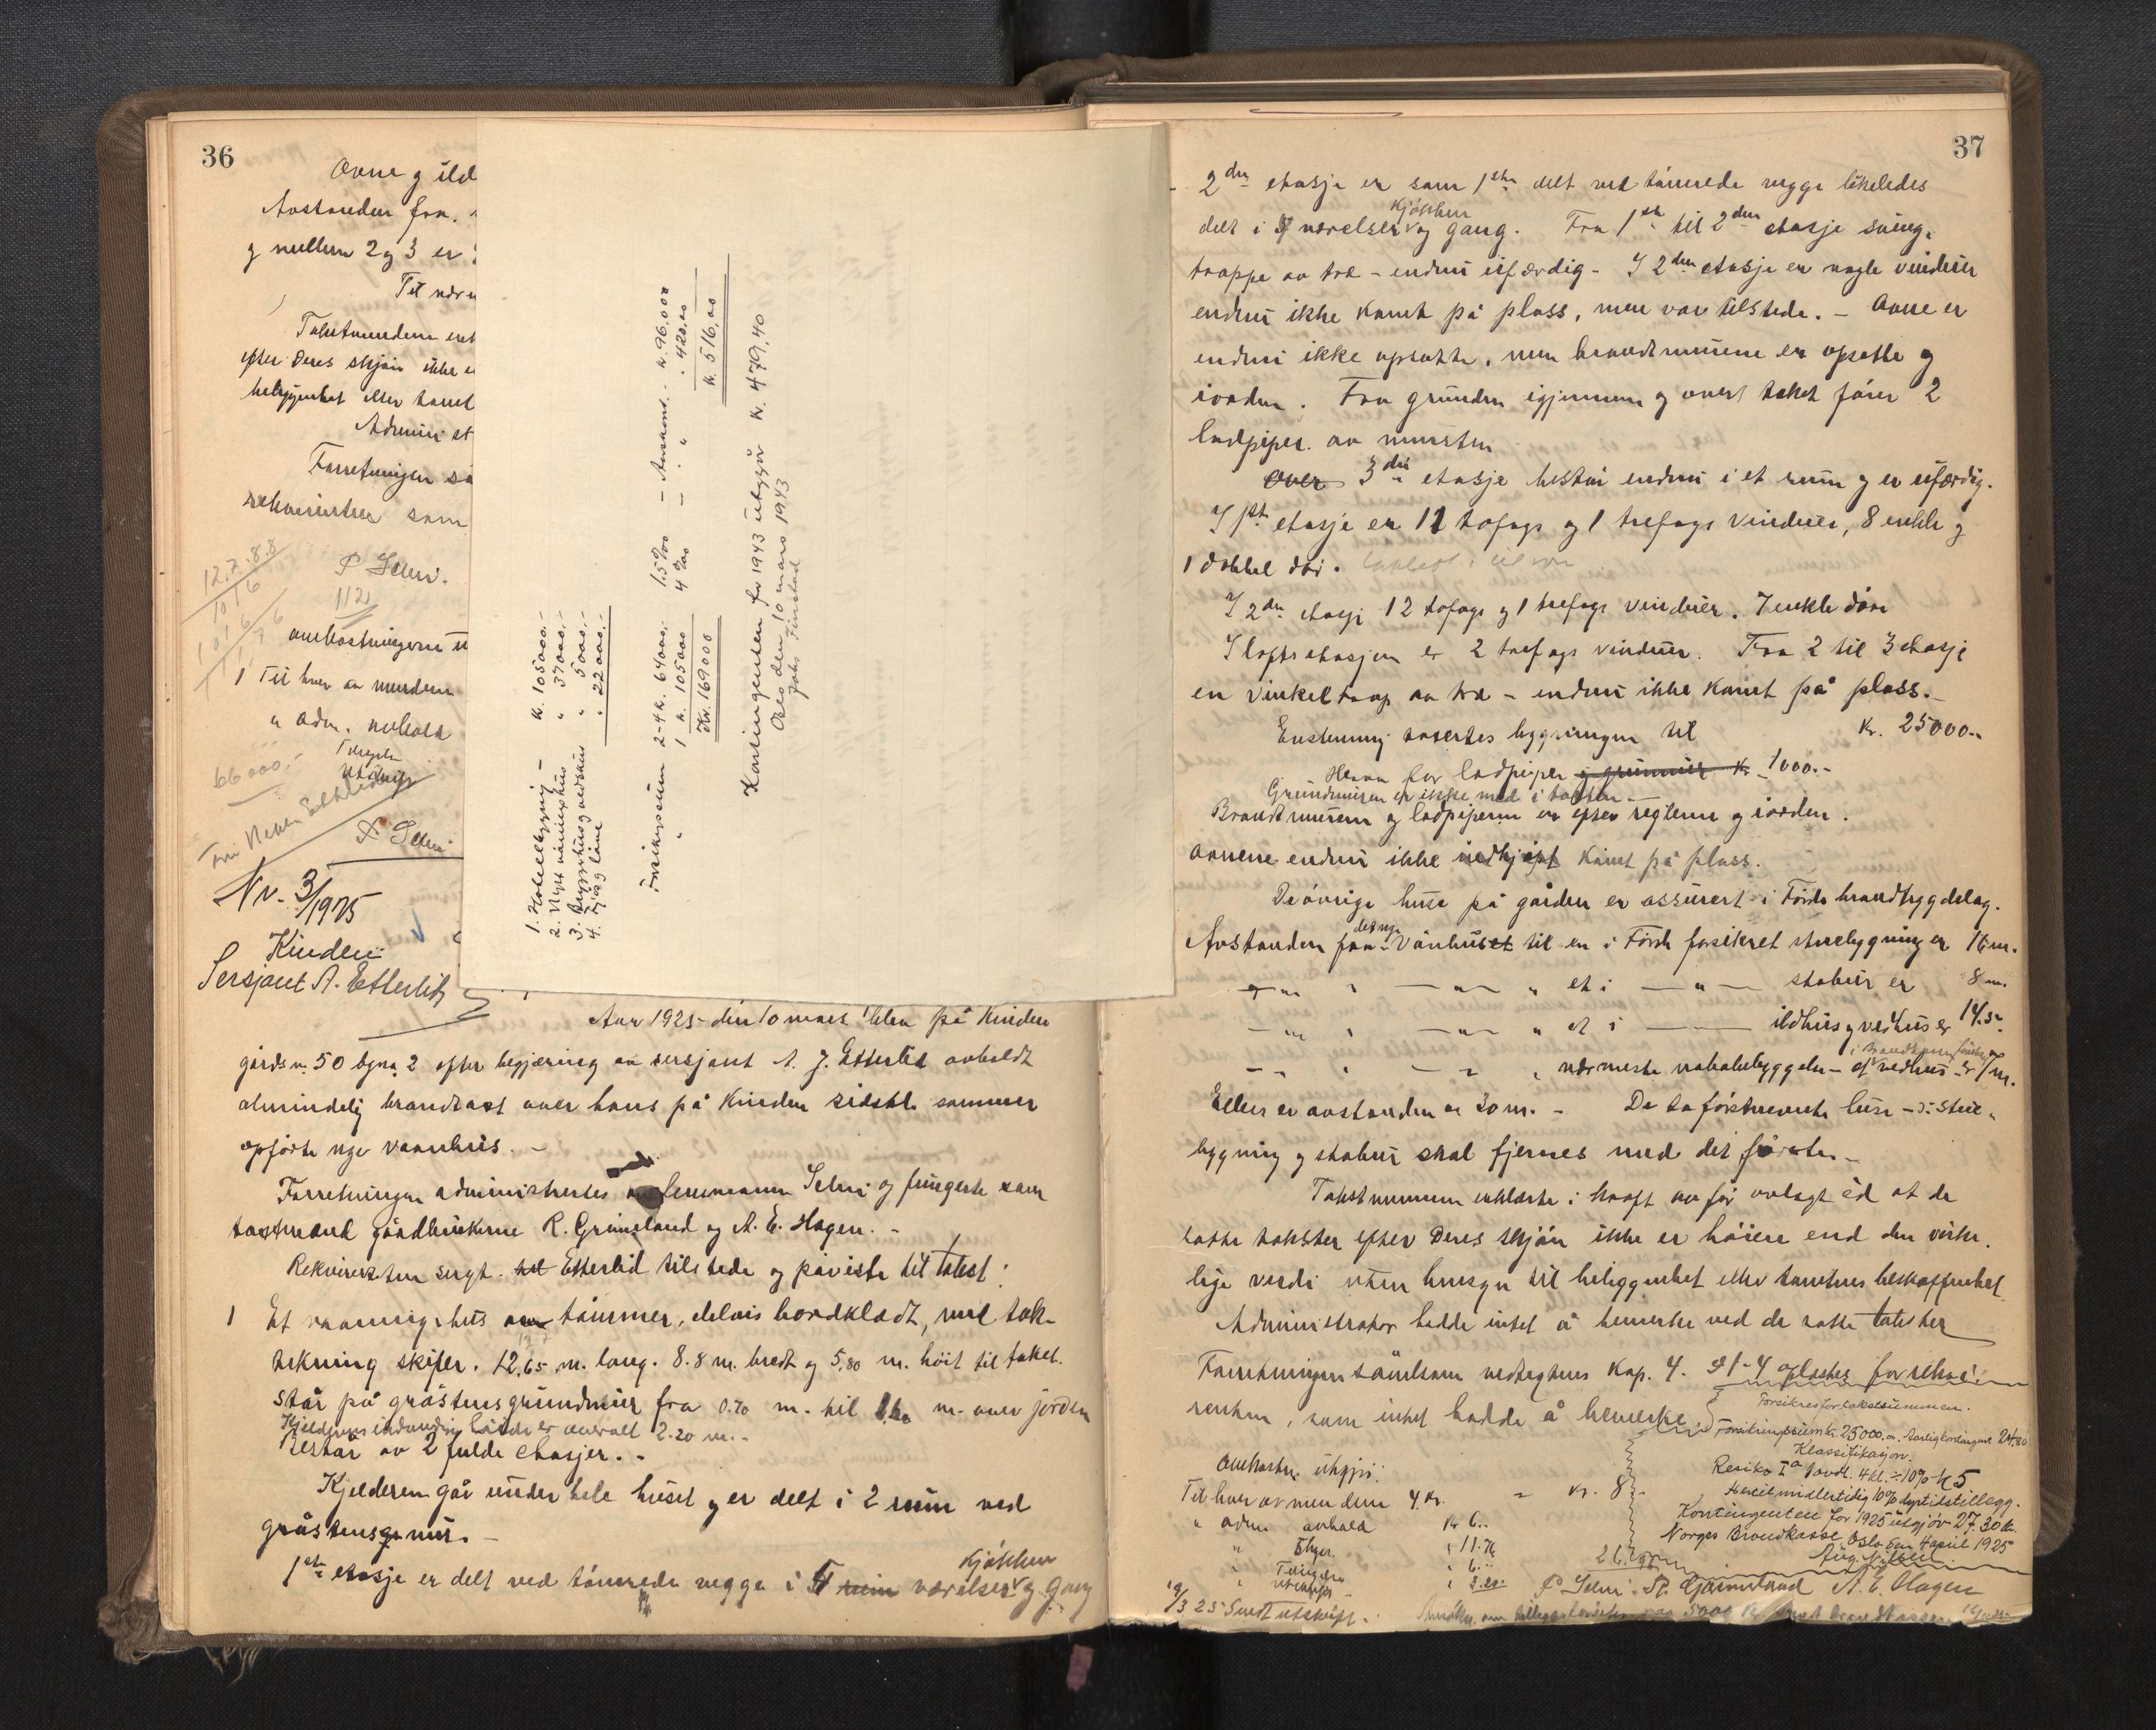 36
Ovne g ild
Avstanden fra
g mellem 2 g 3 er
Til nærm
Takstmændene erk
efter Deres skjøn ikke e
beliggenhet eller tomt
Administ
Forretningen så
rekvirenten som
P Selmi.
112
12.7.8.8
1016
omkostningerne u
1 Til hver av mændene
" adm. avhold
Utskrift
66000.-
Nr. 3/1925
Kinden
Sersjant A. Etterlid
1. Hotelbygning - K. 105000.-
2. Nytt våningshus " 37000.-
3. Bryggerhus og vedskur " 5000.-
4. Fjøs og låve " 22000.-
Forsikringssum 2-4 K. 64000,- 1.5 ‰ - Årskont. - K. 96.00
" 1 K. 105000 4 ‰ - " . 420.00
Kr. 169000 K. 516,00
Kontingenten for 1943 utgjør K. 479,40
Oslo den 10 mars 1943
Finstad
Aar 1925 den 10 mars blev på Kinden
gårdsn. 50 bgnr. 2 efter begjæring av sersjant A. J. Etterlid avholdt
almindelig brandtakst over hans på Kinden sidste sommer
opførte nye vaanhus. -
Forretningen administrertes av lensmann Selmi og fungerte som
takstmænd gårdbrukerne R. Grimeland og A. E. Hagen. -
Rekvirenten sersjt. Etterlid tilstede og påviste til takst:
1 Et vaaningshus av tømmer, delvis bordklædt, med tak-
tekning skifer. 12.65 m. lang. 8.8 m. bredt og 5.80 m. høit til taket.
Står på gråstensgrundmur fra 0.70 m. til m. over jorden
Kjelderens indvendig høide er overalt 2.20 m. -
Består av 2 fulde etasjer. -
Kjelderen går under hele huset g er delt i 2 rum ved
gråstensmur. -
Kjøkken
1ste etasje er delt ved tømrede vegge i rum værelser g gang
37
2den etasje er som 1ste delt ved tømrede vegge likeledes
Kjøkken
delt i værelser og gang. Fra 1ste til 2den etasje sving-
trappe av træ - endnu uferdig - I 2den etasje er nogle vinduer
endnu ikke komt på plass, men var tilstede. - Ovne er
endnu ikke opsatte, men brandmurene er opsatte g
iorden. Fra grunden igjennem g over taket fører 2
ladpiper av mursten
Over 3die etasje består endnu i et rum g er uferdig.
I 1ste etasje er 11 tofags g 1 trefags vinduer, 8 enkle g
1 dobbel dør.
I 2den etasje 12 tofags g 1 trefags vinduer. 7 enkle døre
I loftsetasjen er 2 trefags vinduer. Fra 2 til 3 etasje
en vinkeltrap av træ - endnu ikke komt på plass. -
Enstemmig taxertes bygningen til Kr. 25000.-
Herav for ladpiper g grunmur Kr 1000.-
Grundmuren er ikke med i taksten -
Brandmurene g ladpiperne er efter reglerne g iorden.
Ovnene endnu ikke indkjøpt komt på plass.
De øvrige huse på gården er assurert i Førde brandtrygdelag.
det nye
Avstanden fra vånhuset til en i Førde forsikret stuebygning er 16 m.
- " - " - " - " et i - " - stabur er 8 m.
- " - " - " - " et i - ildhus g vedhus er 14.5
nærmeste nabobebyggelse - et vedhus - er 7 m.
Ellers er avstanden er 30 m. - De to førstnevnte huse - o: stue-
bygning g stabur skal fjernes med det første -
Takstmennene erklærte i kraft av før avlagt ed at de
satte takster efter Deres skjøn ikke er høiere end den virke-
lige verdi uten hensyn til beliggenhet eller tomtens beskaffenhet
Administrator hadde intet å bemerke ved de satte takster
Forretningen såvelsom vedtægtens Kap. 4. § 1-4 oplæstes for rekvi-
renten, som intet hadde å bemerke.
Forsikres for takstsummen.
Forsikringssum Kr. 25000.00. Aarlig kontingent 24.80
Klassifikasjon.
Resiko Ia 1 avd. 4 kl. ÷ 10% K 5
Hertil midlertidig 10% dyrtidstillegg.
Kontingenten for 1925 utgjør 27.30 kr.
Norges Brandkasse, Oslo den 4 april 1925
Aug. Nilsen
Omkostn. utgjør:
Til hver av mendene 4 Kr. - Kr. 8.-
" adm avhold Kr 6.-
" Skyss " 11.76
" 6.-
" Utskrift
P. Selmi. R. Grimeland A. E. Hagen
19/3 25 Sendt utskrift.